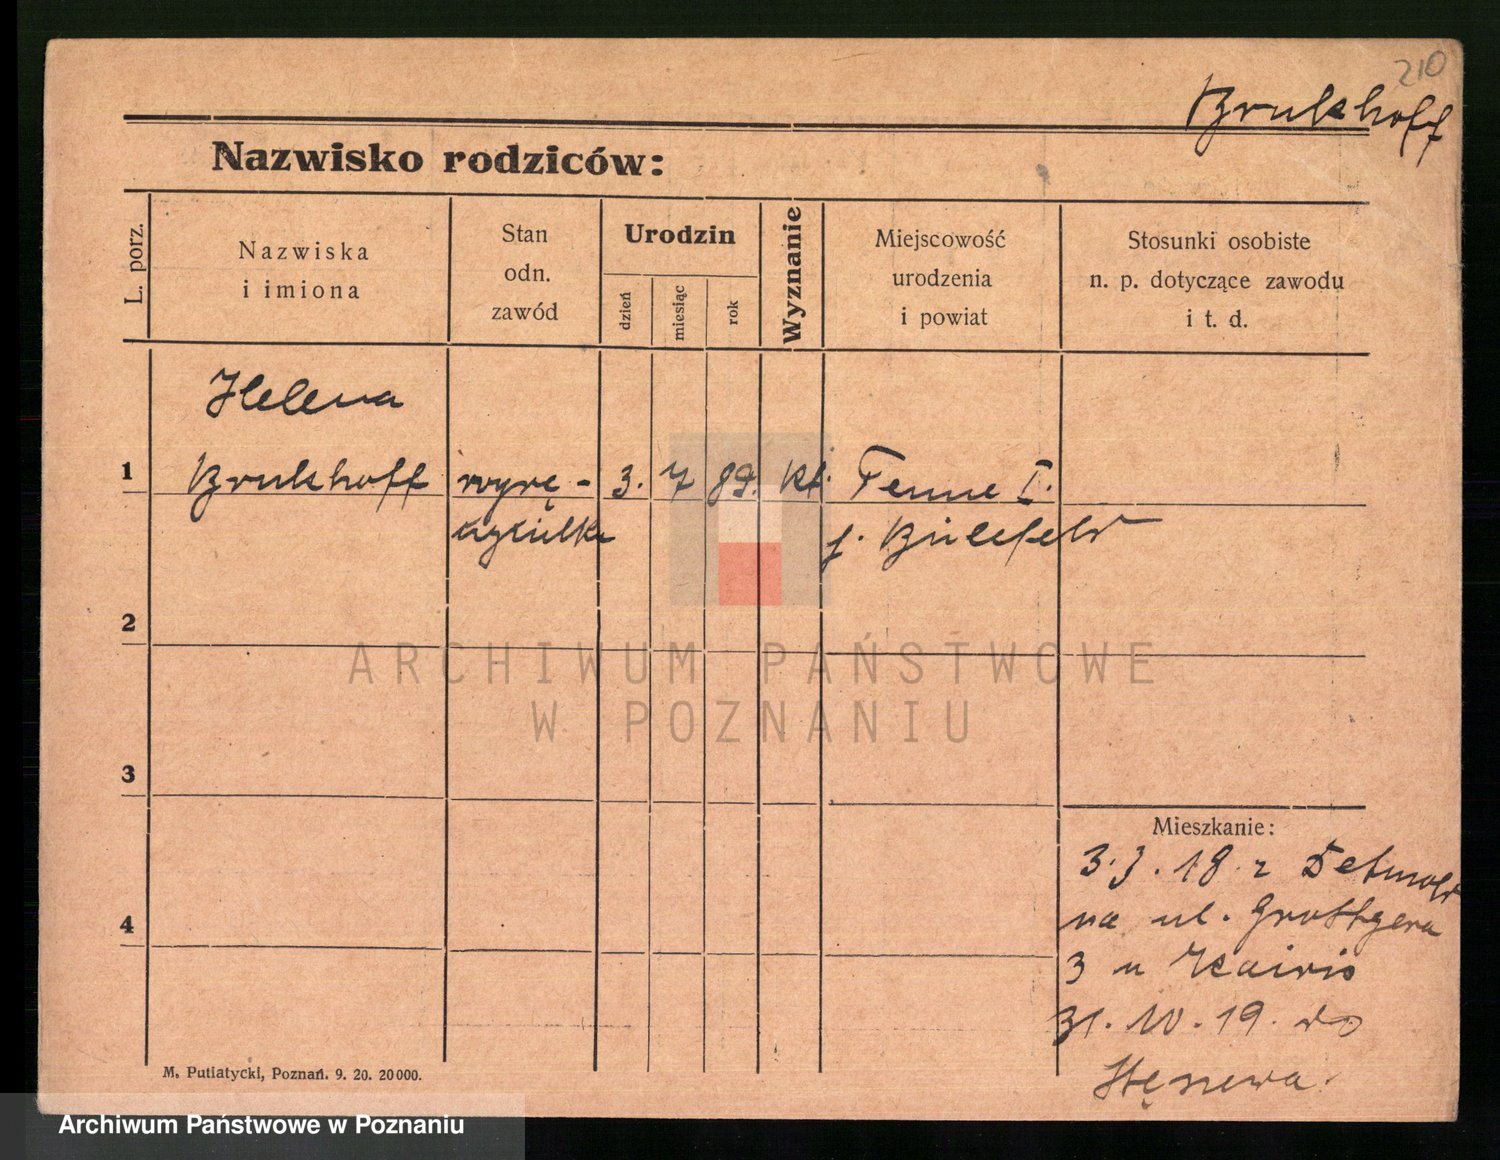 210
Brukshoff
Nazwisko rodziców:
L. porz.
Nazwiska
i imiona
Stan
odn.
zawód
Urodzin
dzień
miesiąc
rok
Wyznanie
Miejscowość
urodzenia
i powiat
Stosunki osobiste
n. p. dotyczące zawodu
i t. d.
Helena
1 Brukshoff wyrę- 3. 7 89. kt. I.
czicielka Bilefeld
2
ARCHIWUM PAŃSTWOWE
W POZNANIU
3
Mieszkanie:
3.3.18 z Detmold
4
na ul. Grottgera
3 u
31.10.19. do
M. Putiatycki, Poznań. 9. 20. 20000.
Archiwum Państwowe w Poznaniu